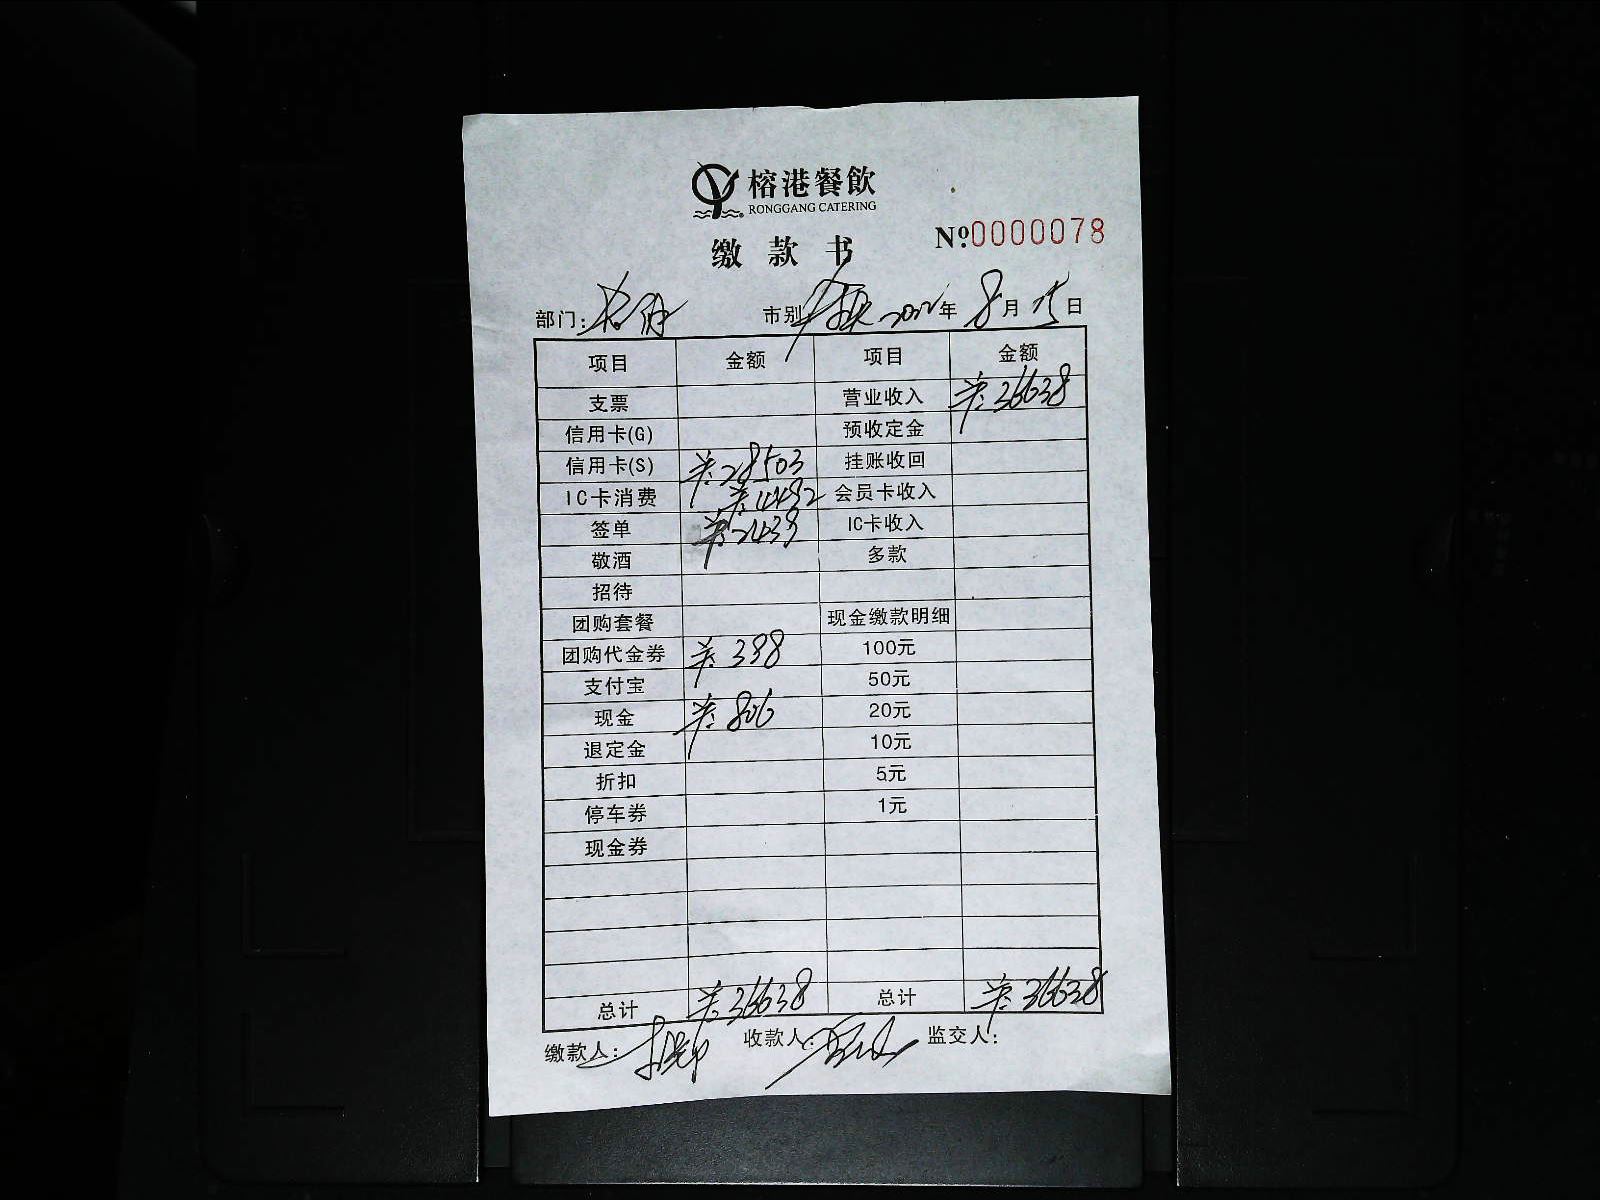 榕港餐飲
RONGGANG CATERING
缴款书 Nº0000078
部门: 市别 2022年8月15日
项目 金额 项目 金额
支票 营业收入 ¥:36638
信用卡(G) 预收定金
信用卡(S) ¥:28503 挂账收回
IC卡消费 ¥:4492 会员卡收入
签单 ¥:2439 IC卡收入
敬酒 多款
招待
团购套餐 现金缴款明细
团购代金券 ¥:398 100元
支付宝 50元
现金 ¥:806 20元
退定金 10元
折扣 5元
停车券 1元
现金券
总计 ¥:36638 总计 ¥:36638
缴款人: 收款人: 监交人: